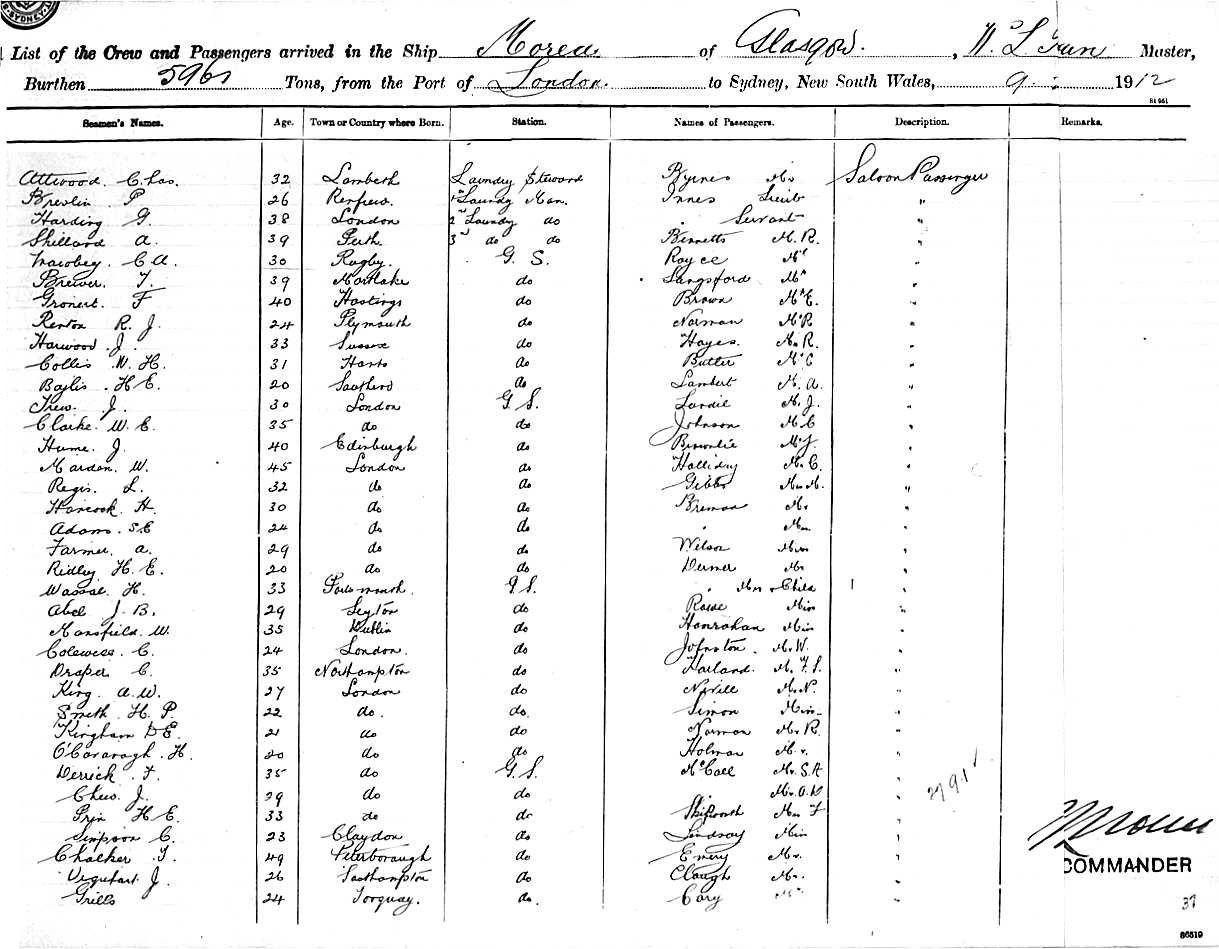 SYDNEY
List of the Crew and Passengers arrived in the Ship Morea of Glasgow. , Master,
Burthen Tons, from the Port of London. to Sydney, New South Wales, 9 : 1912
81 951
Seamen's Names. Age. Town or Country where Born. Station. Names of Passengers. Description. Remarks.
Attwood. Chas. 32 Lambeth Laundry Steward Byrnes Mr Saloon Passenger
Breslin P 26 Renfrew. 1st Laundy Man. Innes "
Harding G. 38 London 2nd Laundy do . Servant "
Shillard A. 39 Perth. 3rd do do Bennetts M. R. "
C A. 30 Rugby. G. S. Royce "
Brewer. T. 39 Mortlake do Langsford "
Gronert. F 40 Hastings do Brown "
Renton R. J. 24 Plymouth do Norman "
Harwood. J. 33 Sussex do Hayes. "
Collis W. H. 31 Hants do Butler "
Baylis . H E. 20 Southend do Lambert M. A. "
Trew. J. 30 London G. S. M. J. "
Clarke. W. E. 35 do do Johnson "
Hume. J. 40 Edinburgh do Brownlie "
Marden. W. 45 London do Halliday "
Regis. L. 32 do do Gibbs "
Hancock. H. 30 do do Mr "
Adams. S.E 24 do do . "
Farmer. A. 29 do do Wilson "
Ridley H. E. 20 do do "
H. 33 Portsmouth. G. S. . & Child 1 "
Abel J. B. 29 Leyton do Miss "
Mansfield. W. 35 Dublin do Hanrahan Miss "
C. 24 London. do Johnston . W. "
Draper C. 35 Northampton do Harland. "
King. A. W. 27 London do Nevill M. N. "
Smith H. P. 22 do. do. Simon Miss "
Kingham D E. 21 do do Norman R. "
O'Cavanagh . H. 20 do do Holman "
Derrick . F. 35 do G. S. McCall "
Chew. J. 29 do do . "
H E. 33 do do "
Simpson C. 23 Claydon do Lindsay Miss "
Chalker . T. 49 Peterborough do Emery Mr. "
Urquhart J. 26 Southampton do Clough Mr. "
Grills 24 Torquay. do. Cary "
COMMANDER
37
86519